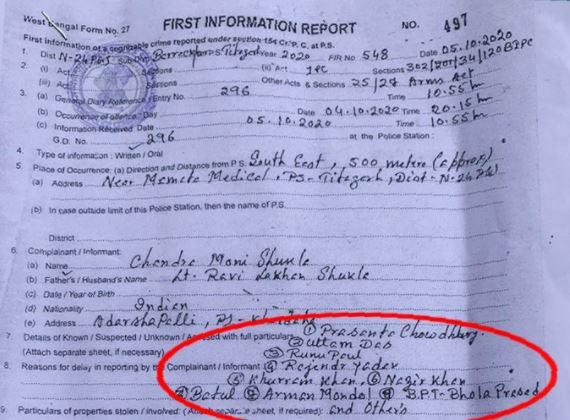 West Bengal Form No. 27
FIRST INFORMATION REPORT NO. 497
First Information of a cognizable crime reported under section 154 Cr. P.C. at P.S.
1. Dist N-24 PGS Sub-Div Barrackpore P.S. Titagarh Year 2020 FIR No 548 Date 05.10.2020
2. (i) Act Sections (ii) Act IPC Sections 302/201/34/120B IPC
(iii) Act Sections Other Acts & Sections 25/27 Arms Act
3. (a) General Diary Reference Entry No. 296 Time 10.55 hr
(b) Occurrence of offence Day Date 04.10.2020 Time 20.15 hr
(c) Information Received Date 05.10.2020 Time 10.55 hr
G.D. No. 296 at the Police Station:
4. Type of information: Written / Oral
5. Place of Occurrence: (a) Direction and Distance from P.S. South East, 500 meters (approx)
(a) Address Near Mamata Medical, PS- Titagarh, Dist- N-24 PGS
(b) In case outside limit of this Police Station, then the name of P.S.
District
6. Complainant / Informant:
(a) Name Chandra Moni Shukla
(b) Father's / Husband's Name Lt. Ravi Lakhan Shukla
(c) Date / Year of Birth
(d) Nationality Indian
(e) Address Adarshapalli, PS- Khardaha
7. Details of Known / Suspected / Unknown / Accused with full particulars ① Prasanta Chowdhury.
② Uttam Das
(Attach separate sheet, if necessary) ③ Runu Paul
8. Reasons for delay in reporting by the Complainant / Informant ④ Rajendr Yadav
⑤ Khurram Khan, ⑥ Nazir Khan
⑦ Batul ⑧ Arman Mondal ⑨ B.P.T- Bhola Prasad
9. Particulars of properties stolen / involved: (Attach separate sheet, if required): and Others